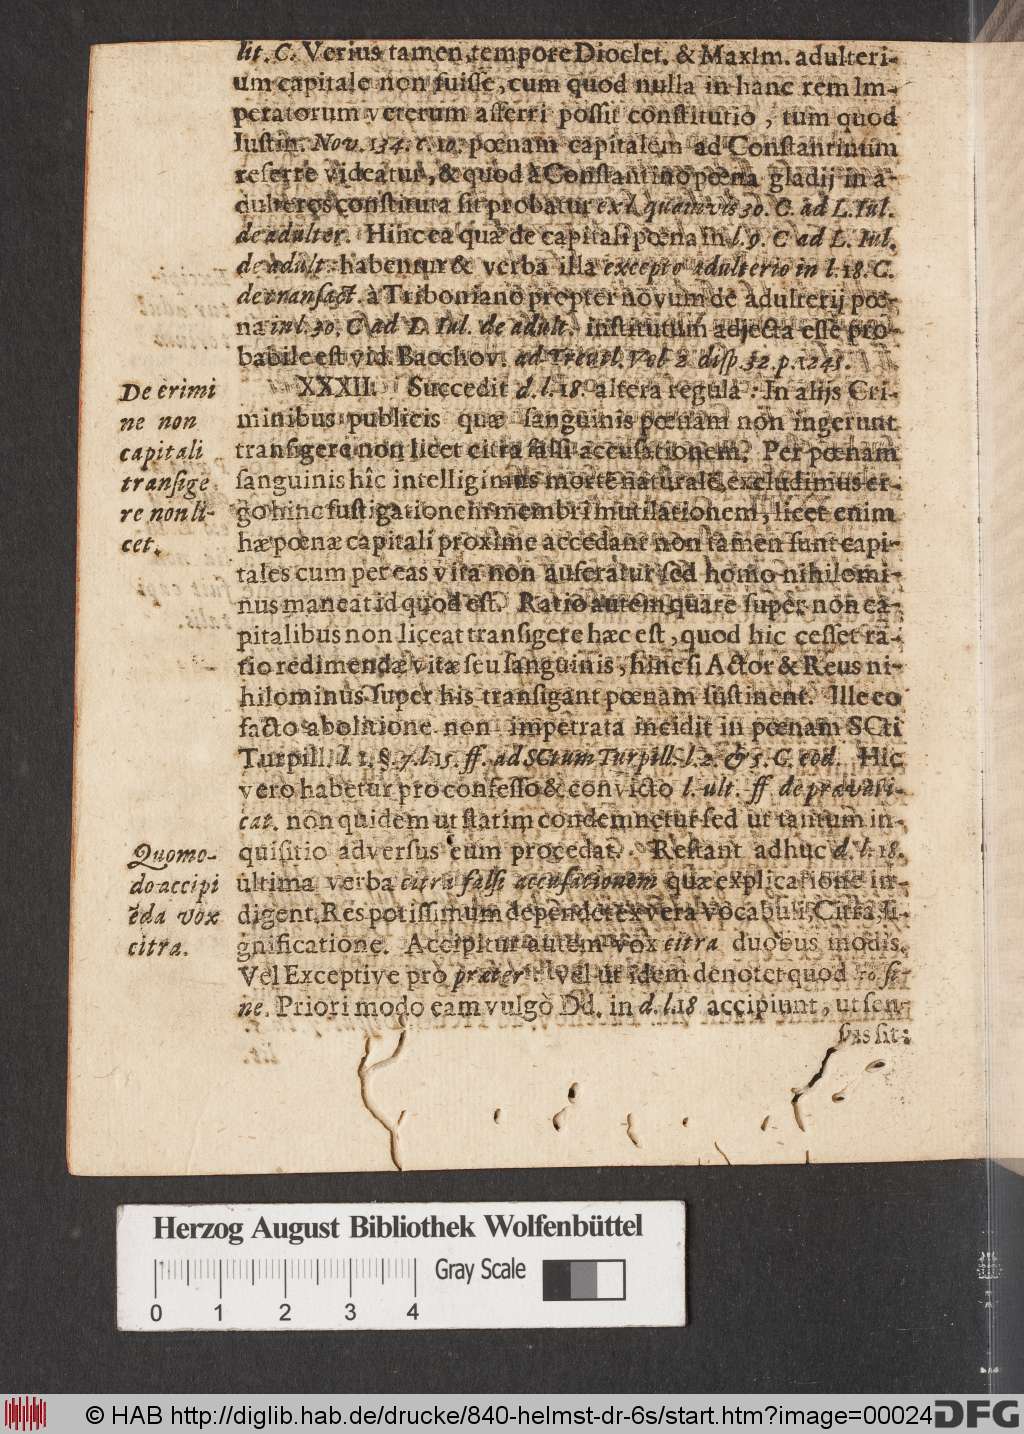 lit. C. Verius tamen tempore Dioclet. & Maxim. adulteri-
um capitale non fuiſſe, cum quod nulla in hanc rem Im-
peratorum veterum afferri poſſit conſtitutio, tum quod
Iuſtin. Nov. 134. c. 10. pœnam capitalem ad Conſtantinum
referre videatur, & quod à Conſtantino pœna gladij in a-
dulteros conſtituta ſit probatur ex l. quamvis 30. C. ad L. Iul.
de adulter. Hinc ea quæ de capitali pœna in l. 9. C ad L. Iul.
de adult. habentur & verba illa excepto adulterio in l. 18. C.
de tranſact. à Triboniano propter novum de adulterij pœ-
na in l. 30. C ad L. Iul. de adult. inſtitutum adjecta eſſe pro-
babile eſt vid. Bacchov. ad Treutl. Vol 2. diſp. 32. p. 1245.
De crimi
ne non
capitali
tranſige
re non li-
cet.
XXXII. Succedit d. l. 18. altera regula: In alijs Cri-
minibus publicis quæ ſanguinis pœnam non ingerunt
tranſigere non licet citra falſi accuſationem. Per pœnam
ſanguinis hîc intelligimus morte naturale, excludimus er-
go hinc fuſtigatione in membri mutilationem, licet enim
hæ pœnæ capitali proxime accedant non tamen ſunt capi-
tales cum per eas vita non auferatur ſed homo nihilomi-
nus maneat id quod eſt. Ratio autem quare ſuper non ca-
pitalibus non liceat tranſigere hæc eſt, quod hic ceſſet ra-
tio redimendæ vitæ ſeu ſanguinis, hinc ſi Actor & Reus ni-
hilominus ſuper his tranſigant pœnam ſuſtinent. Ille eo
facto abolitione non impetrata incidit in pœnam SCti
Turpill. l. 1. §. 7. l. 15. ff. ad SCtum Turpill. l. 2. & 5. C. eod. Hic
vero habetur pro confeſſo & convicto l. ult. ff de prævari-
cat. non quidem ut ſtatim condemnetur ſed ut tantum in-
Quomo-
do accipi
ēda vox
citra.
quiſitio adverſus eum procedat. Reſtant adhuc d. l. 18.
ultima verba citra falſi accuſationem quæ explicatione in-
digent. Res potiſſimum dependet ex vera vocabuli, Citra, ſi-
gnificatione. Accipitur autem vox citra duobus modis.
Vel Exceptive pro præter: vel ut idem denotet quod ſi-
ne. Priori modo eam vulgò Dd. in d. l. 18 accipiunt, ut ſen-
ſus ſit:
Herzog August Bibliothek Wolfenbüttel
Gray Scale
0 1 2 3 4
© HAB http://diglib.hab.de/drucke/840-helmst-dr-6s/start.htm?image=00024
DFG